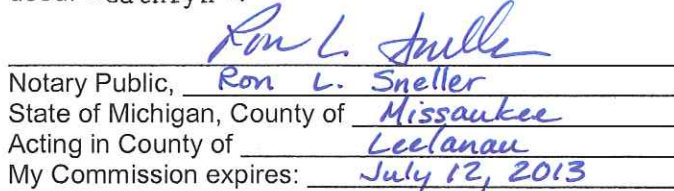 Ron L. Sneller
Notary Public, Ron L. Sneller
State of Michigan, County of Missaukee
Acting in County of Leelanau
My Commission expires: July 12, 2013